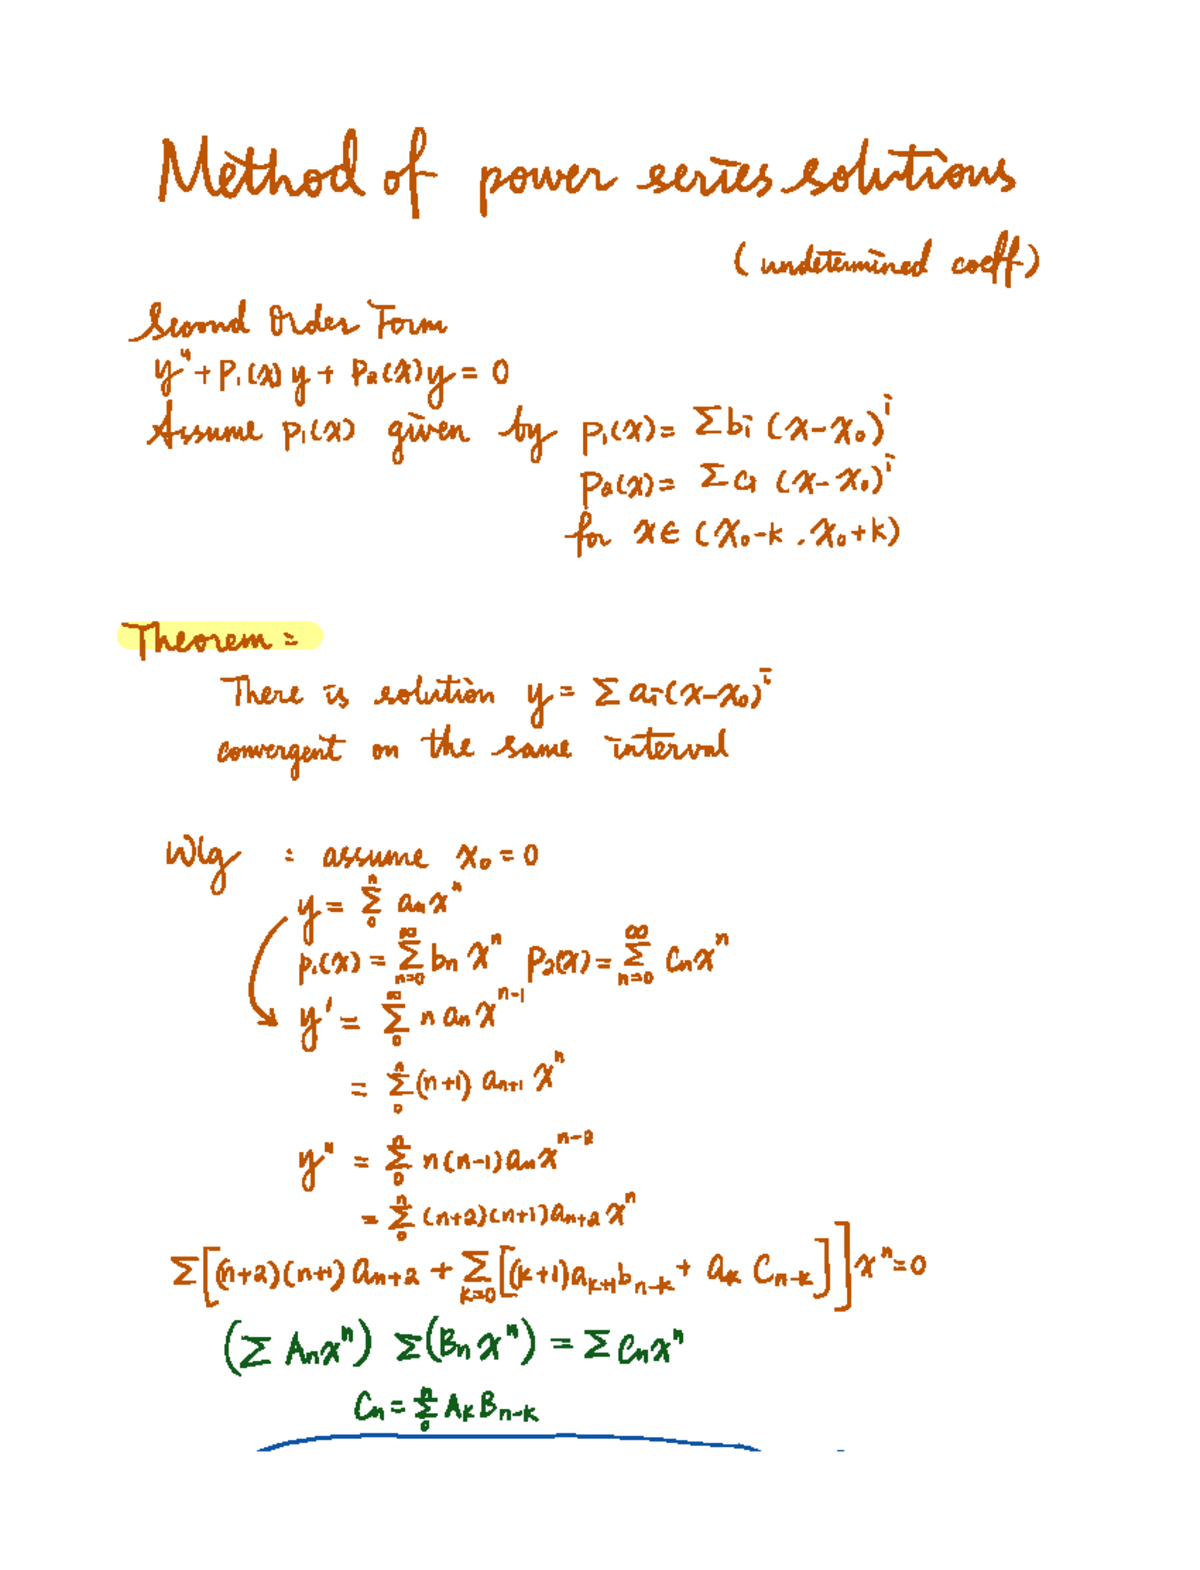 Method of power series solutions
(undetermined coeff)
Second Order Form
y'' + P₁(x) y + P₂(x) y = 0
Assume p₁(x) given by p₁(x) = Σ bᵢ (x-x₀)ⁱ
P₂(x) = Σ cᵢ (x-x₀)ⁱ
for x ∈ (x₀-k , x₀+k)
Theorem =
There is solution y = Σ aᵢ(x-x₀)ⁱ
convergent on the same interval
Wlg : assume x₀ = 0
y = Σ₀ⁿ aₙxⁿ
p₁(x) = Σ_{n=0}^∞ bₙ xⁿ P₂(x) = Σ_{n=0}^∞ Cₙxⁿ
y' = Σ₀^∞ n aₙ xⁿ⁻¹
= Σ₀ⁿ (n+1) aₙ₊₁ xⁿ
y'' = Σ₀ⁿ n(n-1)aₙxⁿ⁻²
= Σ₀ⁿ (n+2)(n+1)aₙ₊₂ xⁿ
Σ[(n+2)(n+1) aₙ₊₂ + Σ_{k=0} [(k+1)a_{k+1}b_{n-k} + a_k C_{n-k}]] xⁿ = 0
(Σ Aₙxⁿ) Σ(Bₙ xⁿ) = Σ Cₙxⁿ
Cₙ = Σ₀ⁿ A_k B_{n-k}